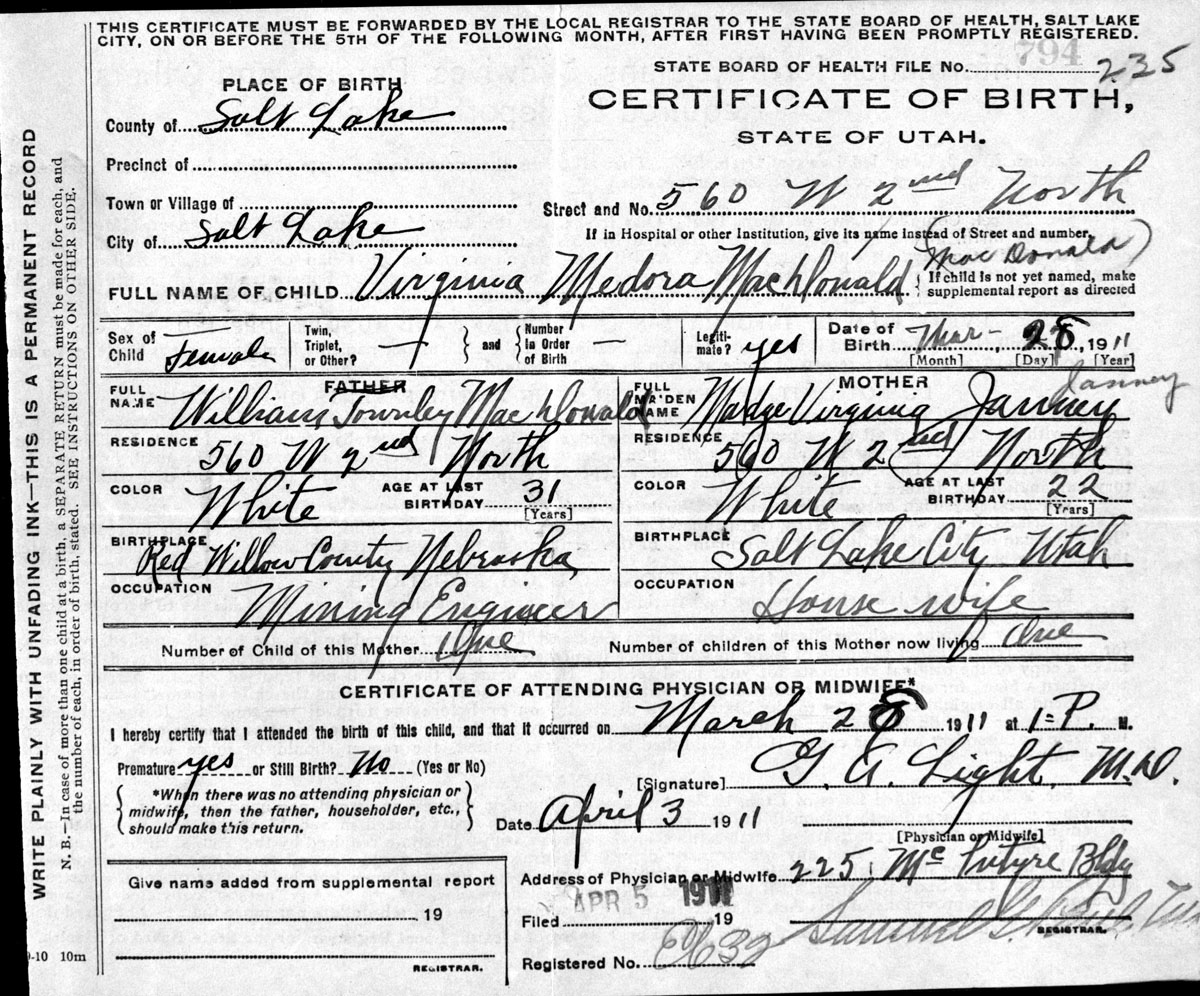 THIS CERTIFICATE MUST BE FORWARDED BY THE LOCAL REGISTRAR TO THE STATE BOARD OF HEALTH, SALT LAKE
CITY, ON OR BEFORE THE 5TH OF THE FOLLOWING MONTH, AFTER FIRST HAVING BEEN PROMPTLY REGISTERED.
794
STATE BOARD OF HEALTH FILE No. 235
PLACE OF BIRTH
CERTIFICATE OF BIRTH,
STATE OF UTAH.
County of Salt Lake
Precinct of
Town or Village of
Street and No. 560 W 2nd North
City of Salt Lake
If in Hospital or other Institution, give its name instead of Street and number.
(Mac Donald)
FULL NAME OF CHILD Virginia Medora MacDonald
{ If child is not yet named, make
supplemental report as directed
Sex of Child Female
Twin, Triplet, or Other? —
} and {
Number in Order of Birth —
Legiti-mate? yes
Date of Birth Mar - 28, 1911
[Month] [Day] [Year]
FATHER
FULL NAME William Townley MacDonald
RESIDENCE 560 W 2nd North
COLOR White
AGE AT LAST BIRTHDAY 31
[Years]
BIRTHPLACE Red Willow County Nebraska
OCCUPATION Mining Engineer
MOTHER
Janney
FULL MAIDEN NAME Madge Virginia Janney
RESIDENCE 560 W 2nd North
COLOR White
AGE AT LAST BIRTHDAY 22
[Years]
BIRTHPLACE Salt Lake City Utah
OCCUPATION House wife
Number of Child of this Mother One
Number of children of this Mother now living One
CERTIFICATE OF ATTENDING PHYSICIAN OR MIDWIFE*
I hereby certify that I attended the birth of this child, and that it occurred on March 28 1911 at 1=P. M.
Premature yes or Still Birth? No (Yes or No)
[Signature] G. A. Light, M.D.
{ *When there was no attending physician or
midwife, then the father, householder, etc.,
should make this return. }
Date April 3 1911
[Physician or Midwife]
Address of Physician or Midwife 225 McIntyre Bldg
Give name added from supplemental report
19
REGISTRAR.
Filed APR 5 1911 19
Samuel G.
REGISTRAR.
Registered No.
9-10 10m
WRITE PLAINLY WITH UNFADING INK—THIS IS A PERMANENT RECORD
N. B.—In case of more than one child at a birth, a SEPARATE RETURN must be made for each, and
the number of each, in order of birth, stated. SEE INSTRUCTIONS ON OTHER SIDE.